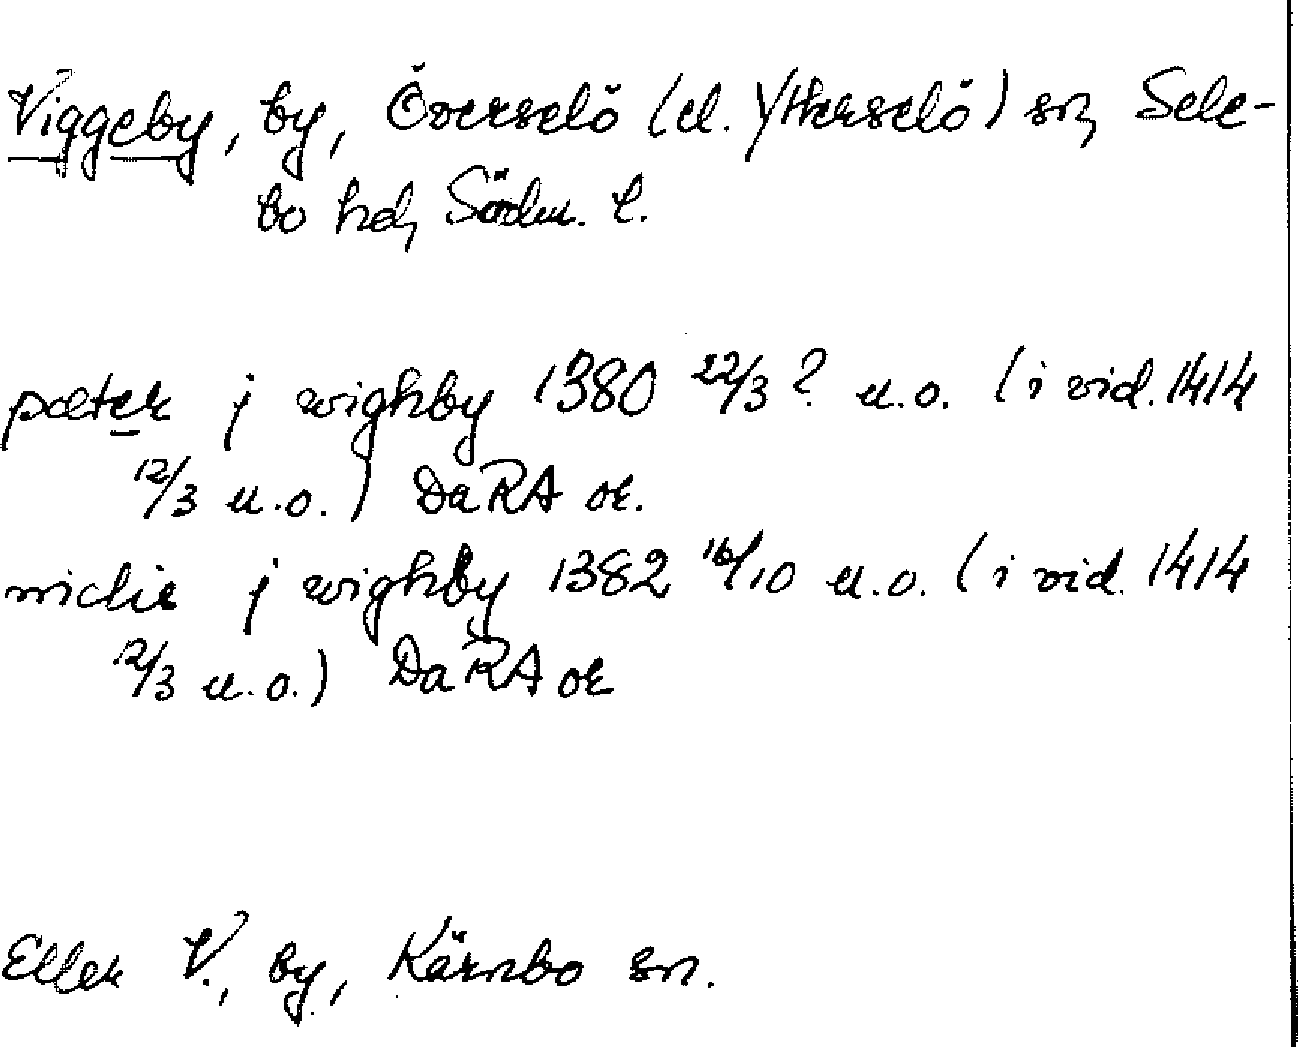 Viggeby, by, Överselö (el. Ytterselö) sn, Sele-
bo hd, Södm. l.
pæter j wighby 1380 22/3 ? u.o. (i vid. 1414
12/3 u.o.) DaRA or.
niclis j wighby 1382 16/10 u.o. (i vid. 1414
12/3 u.o.) DaRA or
Eller V., by, Kärnbo sn.